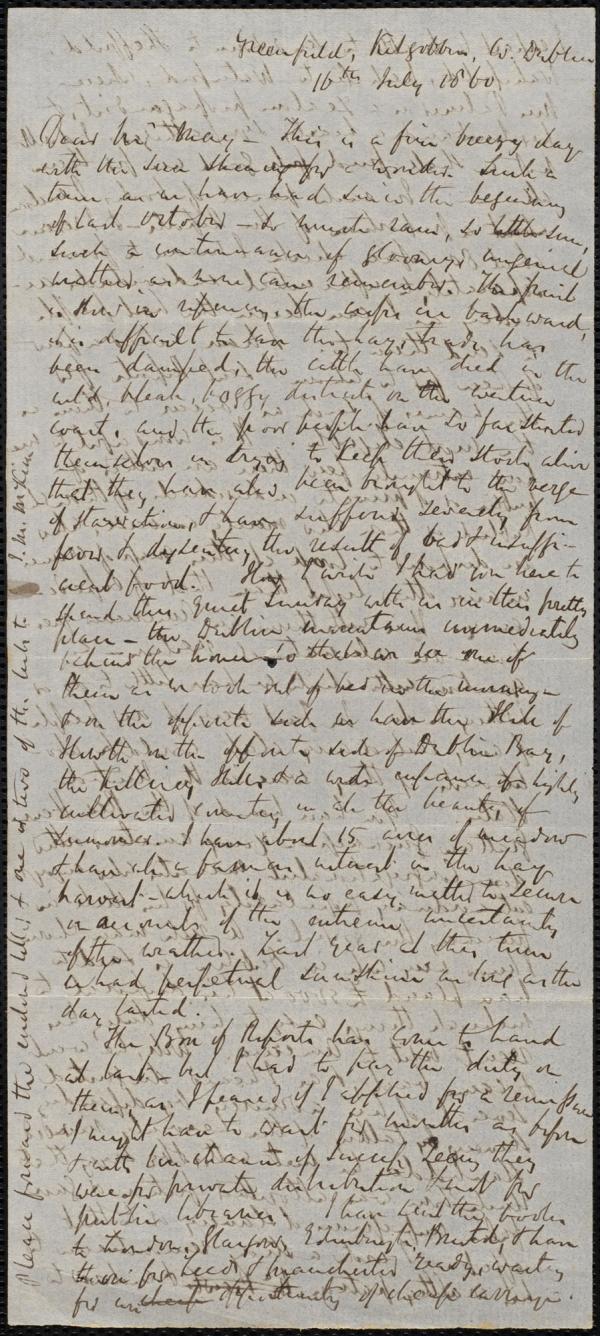 Greenfield, Kilgobbin, Co. Dublin
16th July 1860
Dear Mr May — This is a fine breezy day
with the sun shining for a wonder. Such a
time as we have had since the beginning
of last October — so much rain, so little sun,
such a continuance of gloomy, ungenial
weather as none can remember. The fruit
is slow in ripening, the crops are backward,
it is difficult to save the hay, trade has
been damped, the cattle have died in the
wild, bleak, boggy districts on the western
coast, and the poor people have so far stinted
themselves in trying to keep their stock alive
that they have also been brought to the verge
of starvation, & have suffered severely from
fever & dysentery the result of bad & insuffi-
cient food. I wish I had you here to
spend this quiet Sunday with us in this pretty
place — the Dublin mountains immediately
behind the house so that we see one of
them as we look out of bed in the morning —
& on the opposite side we have the Hill of
Howth on the opposite side of Dublin Bay,
the Killiney Hills & a wide expanse of highly
cultivated country in all the beauty of
Summer. I have about 15 acres of meadow
& have also a farmer's interest in the hay
harvest — which it is no easy matter to secure
on account of the extreme uncertainty
of the weather. Last year at this time
we had perpetual sunshine as long as the
day lasted.
The Box of Reports has come to hand
at last — but I had to pay the duty on
them, as I feared if I applied for a remission
I might have to wait for months as before
& with less chance of success seeing they
were for private distribution & not for
public libraries. I have sent the books
to London, Glasgow, Edinburgh, Bristol, & have
those for Leeds & Manchester ready, waiting
for an opportunity of cheap carriage.
Please forward the enclosed letter & one or two of the lists to J. M. McKim